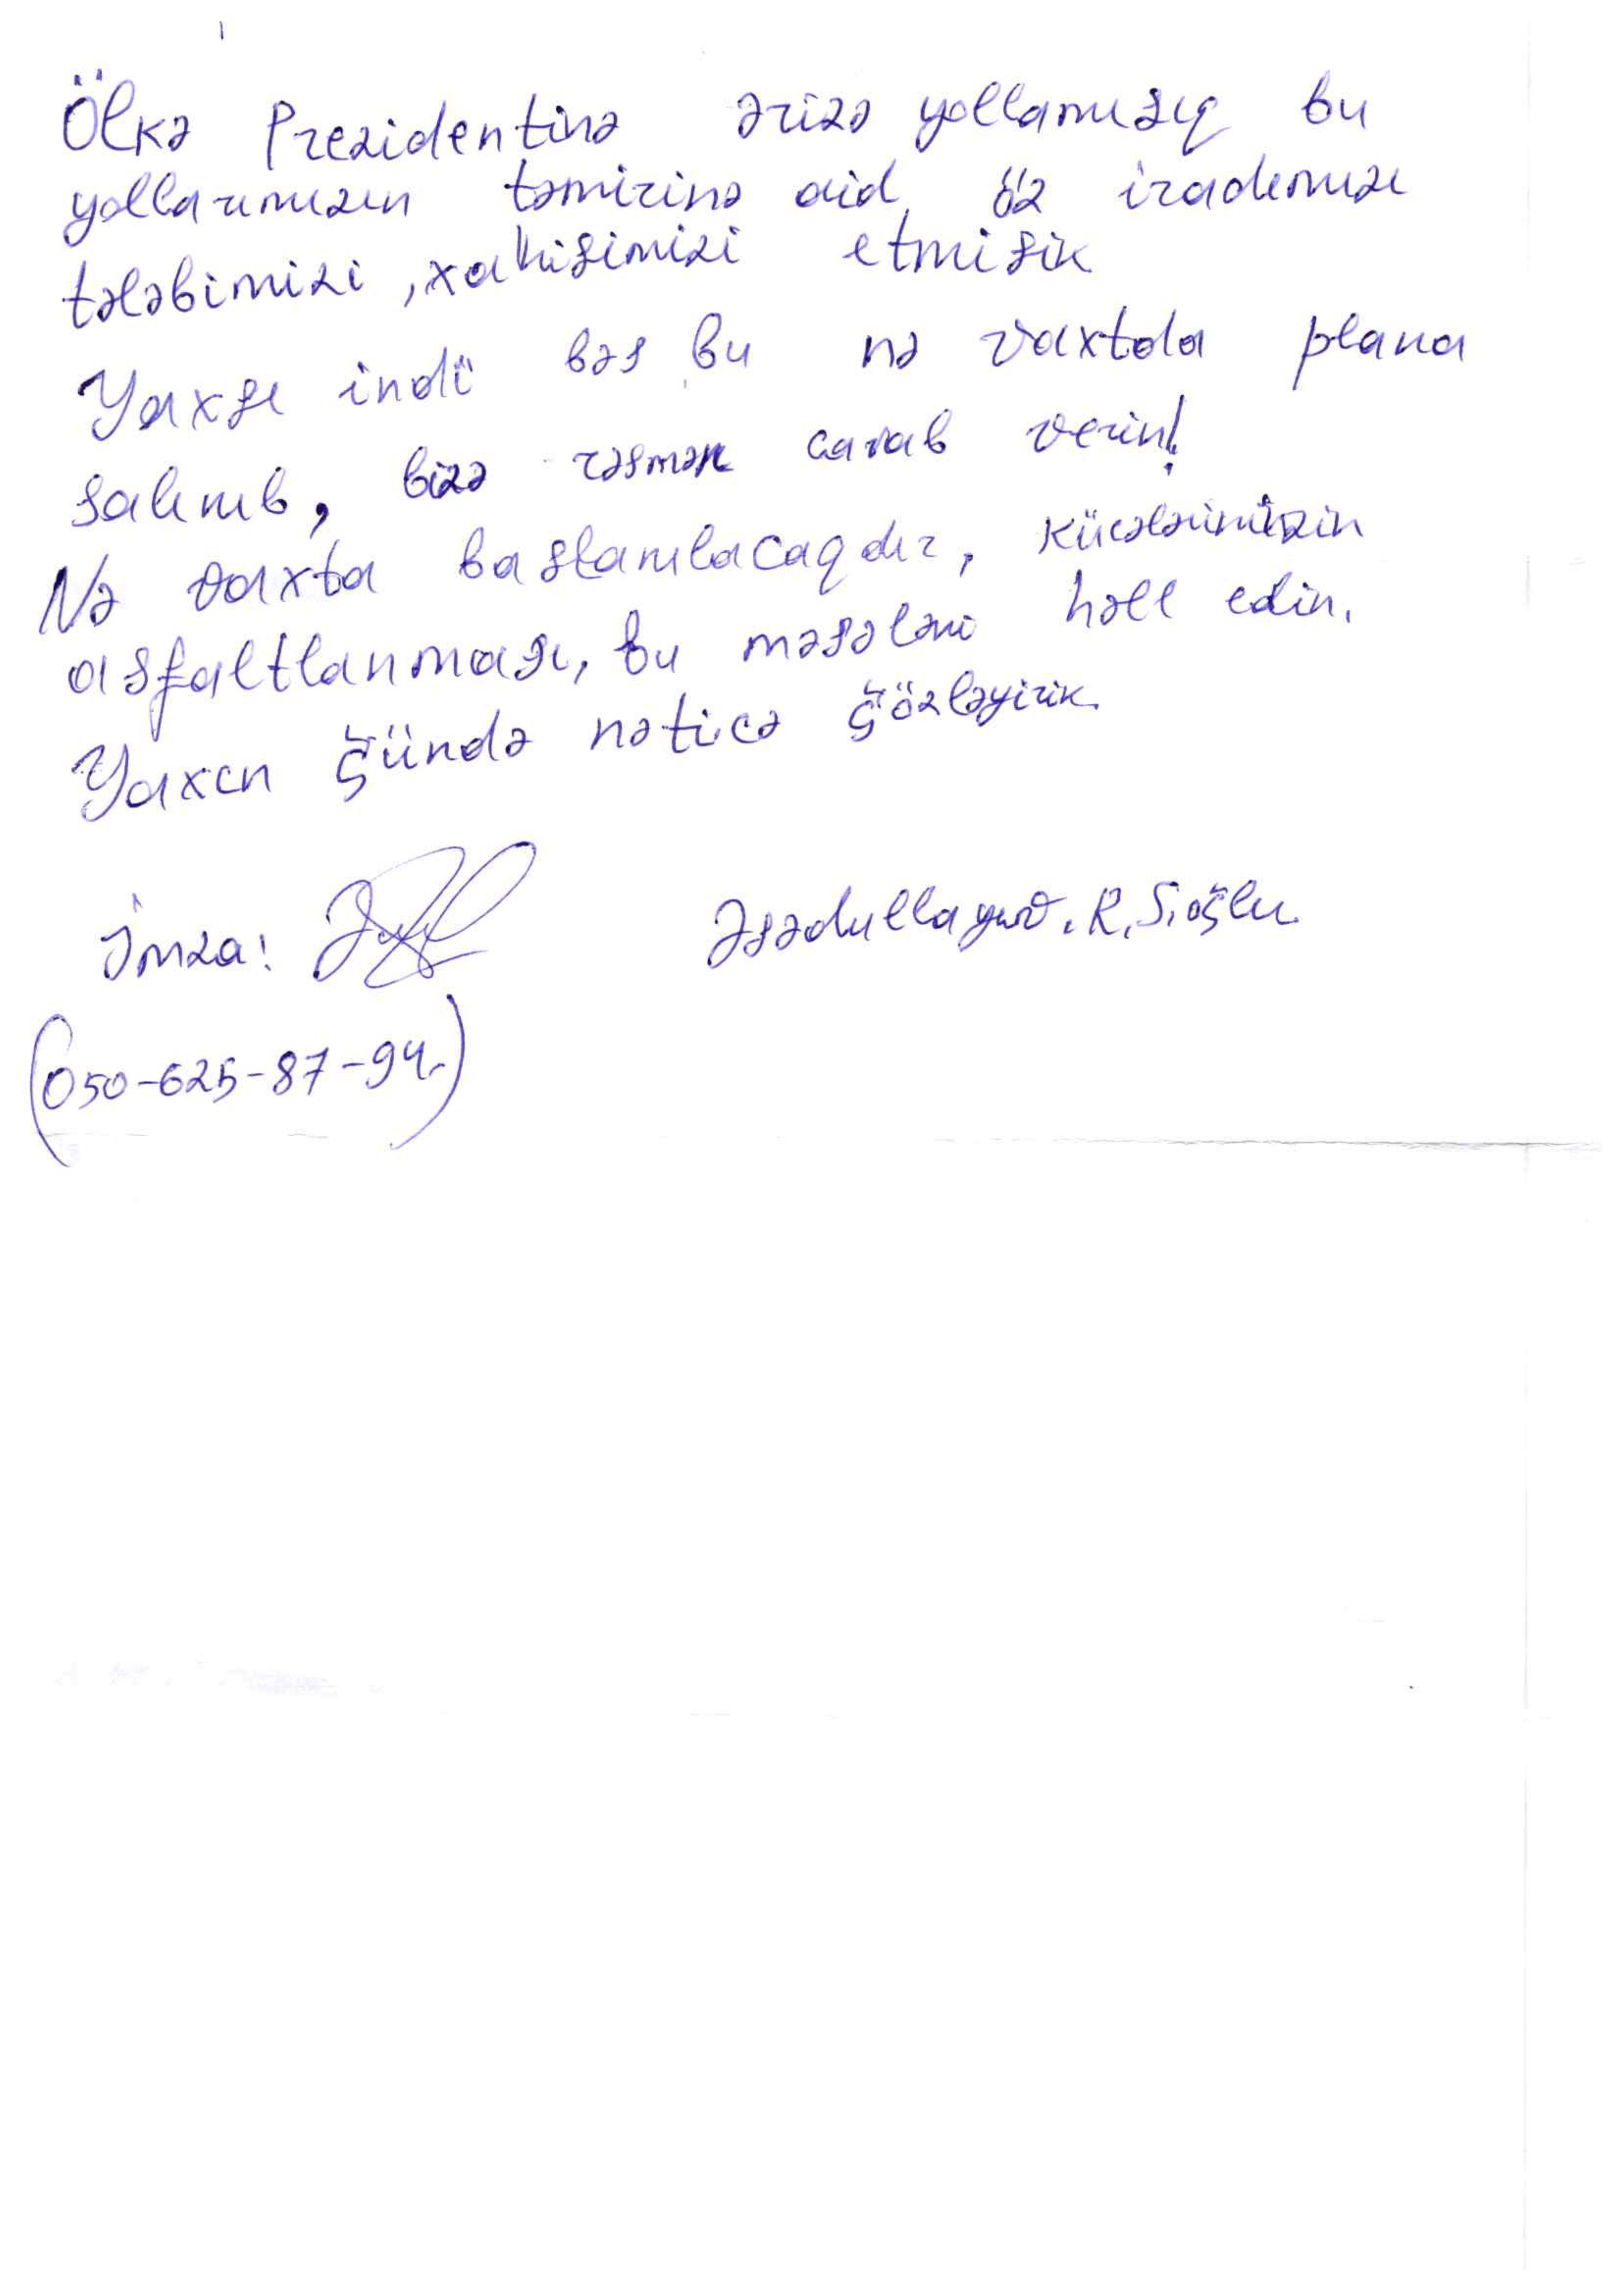 Ölkə Prezidentinə ərizə yollamışıq bu
yollarımızın təmirinə aid öz iradəmizi
tələbimizi, xahişimizi etmişik
Yaxşı indi bəs bu nə vaxtda plana
salınıb, bizə rəsmən cavab verin!
Nə vaxta başlanılacaqdır, Küçələrimizin
asfaltlanması, bu məsələni həll edin.
Yaxın ğündə nəticə ğözləyirik.
İmza: Əsədullayev. R. S. oğlu
(050-625-87-94.)